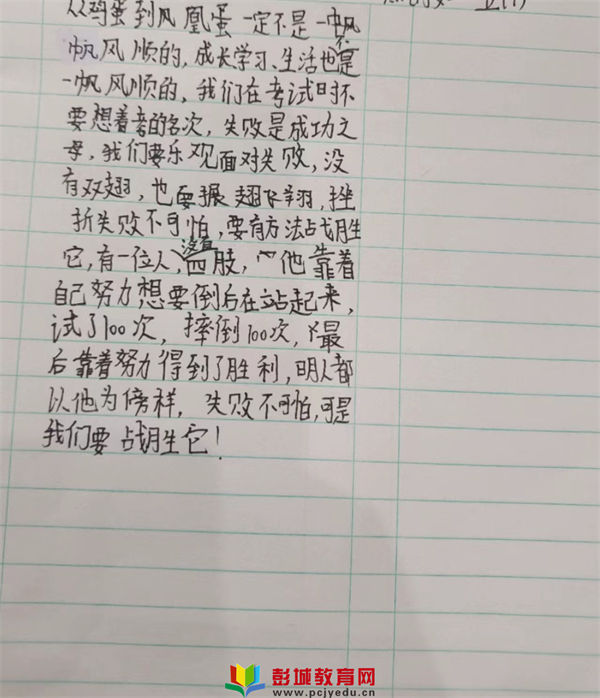 从鸡蛋到凤凰蛋一定不是一帆
帆风顺的,成长学习、生活也不是
一帆风顺的,我们在考试时不
要想着考的名次,失败是成功之
母,我们要乐观面对失败,没
有双翅,也要展翅飞翔,挫
折失败不可怕,要有方法占战胜
没有
它,有一位人,四肢,他靠着
自己努力想要倒后在站起来,
试了100次,摔倒100次,最
后靠着努力得到了胜利,明人都
以他为傍样,失败不可怕,可是
我们要战胜它!
彭城教育网
www.pcjyedu.cn